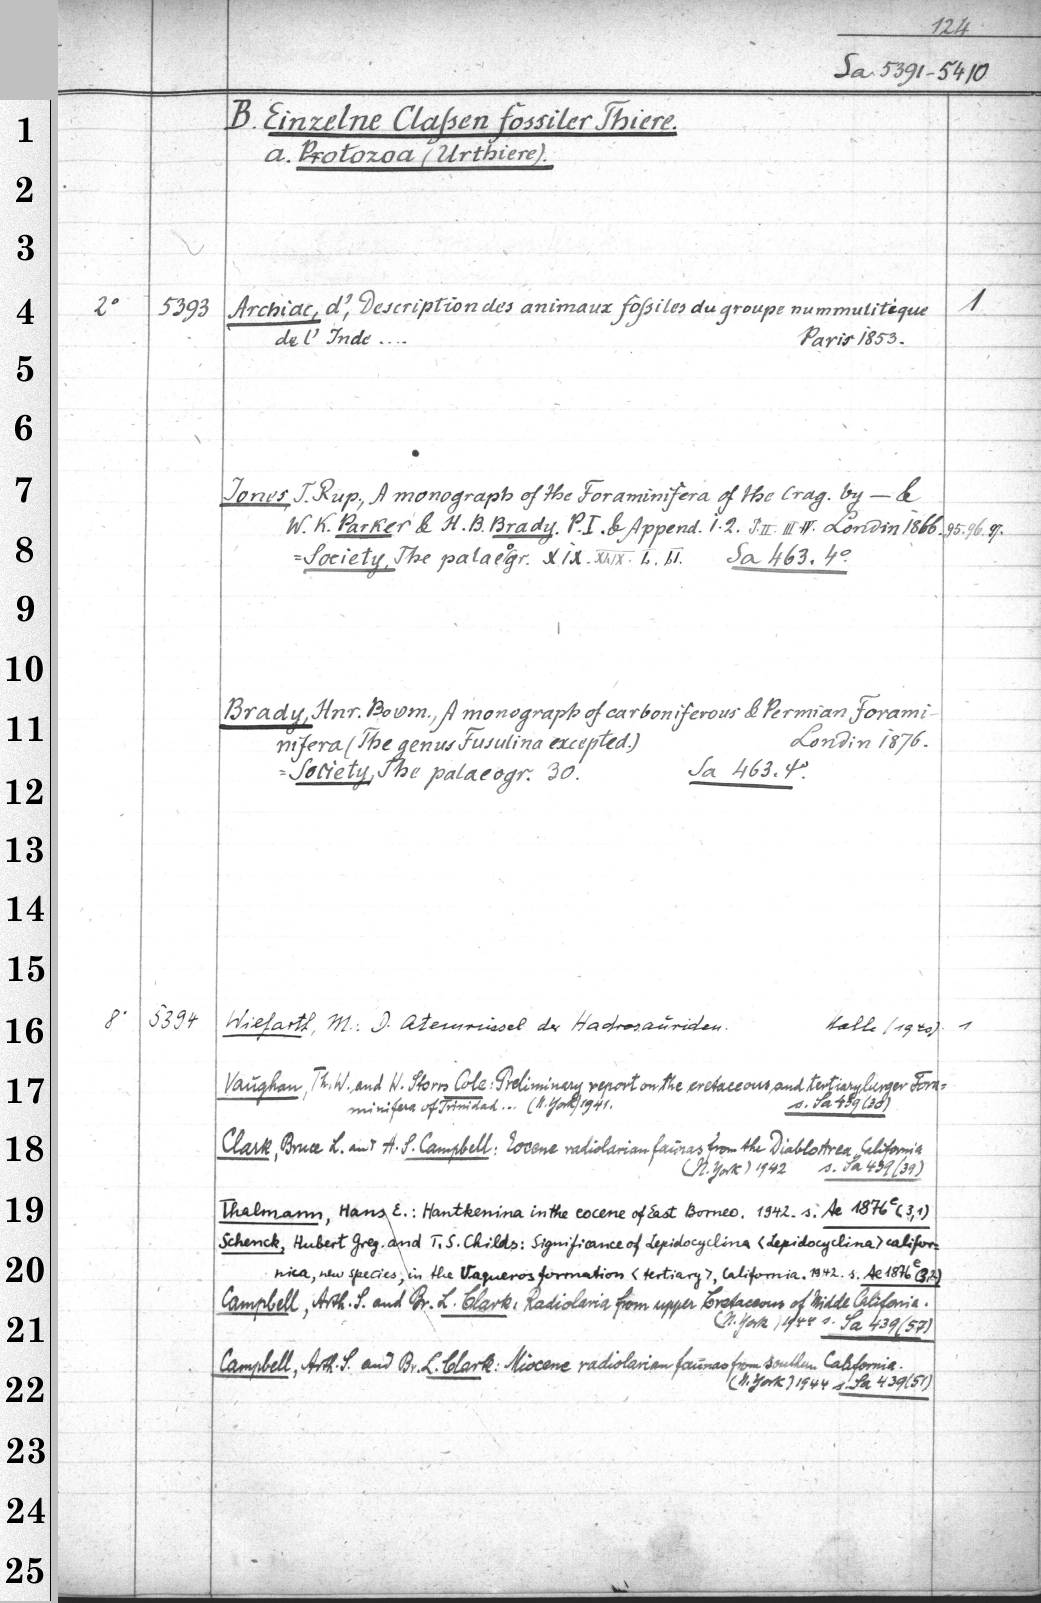 124
Sa. 5391-5410
1
B. Einzelne Claßen fossiler Thiere.
a. Protozoa (Urthiere).
2
3
4 2° 5393 Archiac, d', Description des animaux foßiles du groupe nummulitèque 1
de l' Inde .... Paris 1853.
5
6
7 Jones, T. Rup., A monograph of the Foraminifera of the Crag. by — &
W. K. Parker & H. B. Brady. P. I. & Append. 1.2. I. II. III. IV. Londin 1866. 95. 96. 97.
8 =Society, The palaeogr. XIX. XLIX. L. LI. Sa 463. 4°.
9
10
Brady, Hnr. Bowm., A monograph of carboniferous & Permian Forami-
11 nifera (The genus Fusulina excepted.) Londin 1876.
=Society, The palaeogr. 30. Sa 463. 4°.
12
13
14
15
16 8° 5394 Wiefarth, M.: D. Atemrüssel der Hadrosauriden. Halle (1940). 1
17 Vaughan, Th. W. and W. Storrs Cole: Preliminary report on the cretaceous and tertiary larger Fora=
minifera of Trinidad... (N. York) 1941. s. Sa 439 (30)
18 Clark, Bruce L. and A. S. Campbell: Eocene radiolarian faunas from the Diablo Area, California
(N. York) 1942 s. Sa 439 (39)
19 Thalmann, Hans E.: Hantkenina in the eocene of East Borneo. 1942. s. Ae 1876e (3,1)
Schenck, Hubert Greg. and T. S. Childs: Significance of Lepidocyclina <Lepidocyclina> califor=
20 nica, new species, in the Vaqueros formation <tertiary>, California. 1942. s. Ae 1876e (3,2)
Campbell, Arth. S. and Br. L. Clark: Radiolaria from upper Cretaceous of Middle California.
21 (N. York) 1944 s. Sa 439 (57)
Campbell, Arth. S. and Br. L. Clark: Miocene radiolarian faunas from southern California.
22 (N. York) 1944 s. Sa 439 (51)
23
24
25